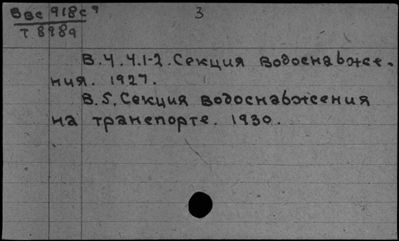 Ввс 918с⁹ 3
Т 898а
В.4.Ч.1-2. Секция водоснабже-
ния. 1927.
В.5. Секция водоснабжения
на транспорте. 1930.